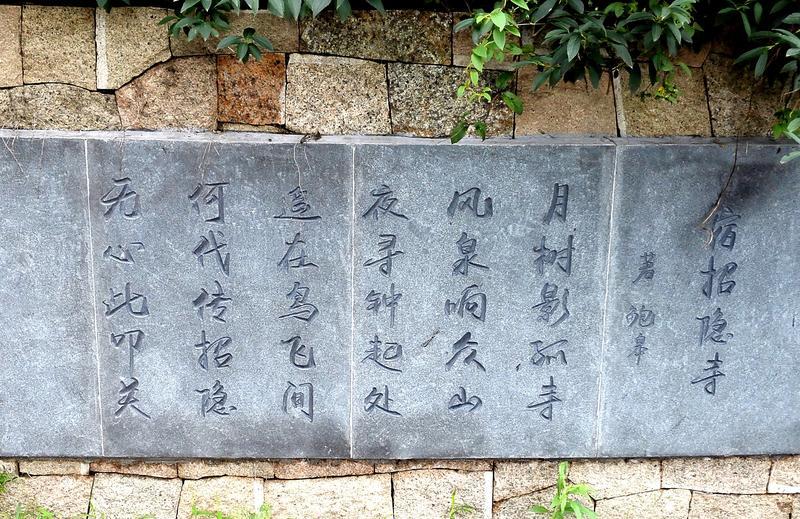 宿招隐寺
著 鲍皋
月树影孤寺
风泉响众山
夜寻钟起处
遥在鸟飞间
何代传招隐
无心此叩关